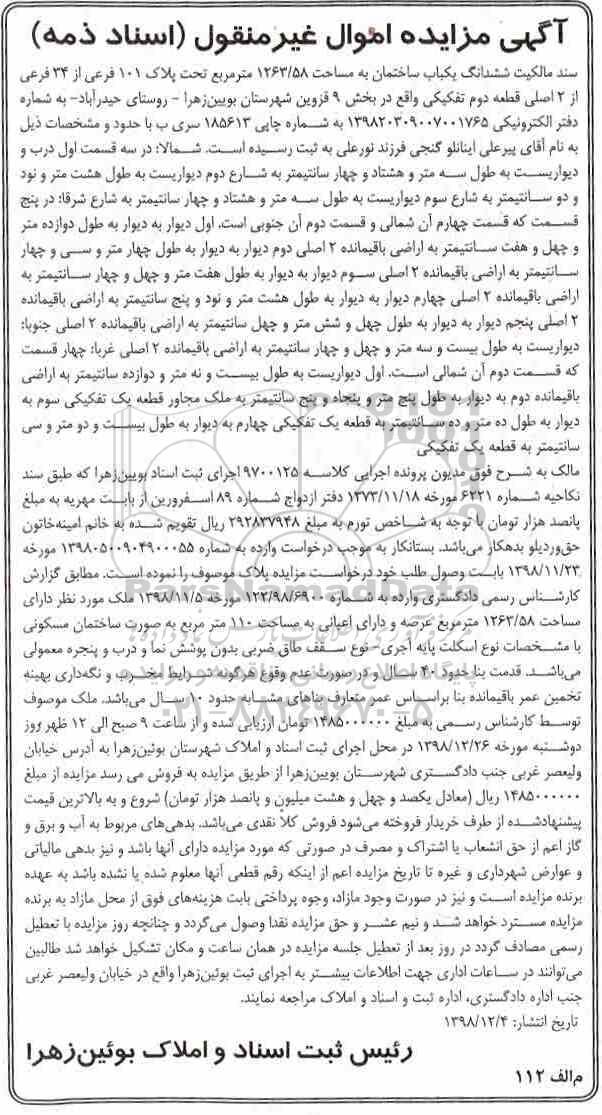 آگهی مزایده اموال غیرمنقول (اسناد ذمه)
سند مالکیت ششدانگ یکباب ساختمان به مساحت ۱۲۶۳/۵۸ مترمربع تحت پلاک ۱۰۱ فرعی از ۳۴ فرعی
از ۲ اصلی قطعه دوم تفکیکی واقع در بخش ۹ قزوین شهرستان بویین‌زهرا - روستای حیدرآباد- به شماره
دفتر الکترونیکی ۱۳۹۸۲۰۳۰۹۰۰۷۰۰۱۷۶۵ به شماره چاپی ۱۸۵۶۱۳ سری ب با حدود و مشخصات ذیل
به نام آقای پیرعلی اینانلو گنجی فرزند نورعلی به ثبت رسیده است. شمالا: در سه قسمت اول درب و
دیواریست به طول سه متر و هشتاد و چهار سانتیمتر به شارع دوم دیواریست به طول هشت متر و نود
و دو سانتیمتر به شارع سوم دیواریست به طول سه متر و هشتاد و چهار سانتیمتر به شارع شرقا: در پنج
قسمت که قسمت چهارم آن شمالی و قسمت دوم آن جنوبی است. اول دیوار به دیوار به طول دوازده متر
و چهل و هفت سانتیمتر به اراضی باقیمانده ۲ اصلی دوم دیوار به دیوار به طول چهار متر و سی و چهار
سانتیمتر به اراضی باقیمانده ۲ اصلی سوم دیوار به دیوار به طول هفت متر و چهل و چهار سانتیمتر به
اراضی باقیمانده ۲ اصلی چهارم دیوار به دیوار به طول هشت متر و نود و پنج سانتیمتر به اراضی باقیمانده
۲ اصلی پنجم دیوار به دیوار به طول چهل و شش متر و چهل سانتیمتر به اراضی باقیمانده ۲ اصلی جنوبا:
دیواریست به طول بیست و سه متر و چهل و چهار سانتیمتر به اراضی باقیمانده ۲ اصلی غربا: چهار قسمت
که قسمت دوم آن شمالی است. اول دیواریست به طول بیست و نه متر و دوازده سانتیمتر به اراضی
باقیمانده دوم به دیوار به طول پنج متر و پنجاه و پنج سانتیمتر به ملک مجاور قطعه یک تفکیکی سوم به
دیوار به طول ده متر و ده سانتیمتر به قطعه یک تفکیکی چهارم به دیوار به طول بیست و دو متر و سی
سانتیمتر به قطعه یک تفکیکی
مالک به شرح فوق مدیون پرونده اجرایی کلاسه ۹۷۰۰۱۲۵ اجرای ثبت اسناد بویین‌زهرا که طبق سند
نکاحیه شماره ۶۲۲۱ مورخه ۱۳۷۳/۱۱/۱۸ دفتر ازدواج شماره ۸۹ اسفرورین از بابت مهریه به مبلغ
پانصد هزار تومان با توجه به شاخص تورم به مبلغ ۲۹۲۸۳۷۹۴۸ ریال تقویم شده به خانم امینه‌خاتون
حق‌وردیلو بدهکار می‌باشد. بستانکار به موجب درخواست وارده به شماره ۱۳۹۸۰۵۰۰۹۰۴۹۰۰۰۵۵ مورخه
۱۳۹۸/۱۱/۲۳ بابت وصول طلب خود درخواست مزایده پلاک موصوف را نموده است. مطابق گزارش
کارشناس رسمی دادگستری وارده به شماره ۱۲۳/۹۸/۶۹۰۰ مورخه ۱۳۹۸/۱۱/۵ ملک مورد نظر دارای
مساحت ۱۲۶۳/۵۸ مترمربع عرصه و دارای اعیانی به مساحت ۱۱۰ متر مربع به صورت ساختمان مسکونی
با مشخصات نوع اسکلت پایه آجری- نوع سقف طاق ضربی بدون پوشش نما و درب و پنجره معمولی
می‌باشد. قدمت بنا حدود ۴۰ سال و در صورت عدم وقوع هرگونه شرایط مخرب و نگه‌داری بهینه
تخمین عمر باقیمانده بنا براساس عمر متعارف بناهای مشابه حدود ۱۰ سال می‌باشد. ملک موصوف
توسط کارشناس رسمی به مبلغ ۱۴۸۵۰۰۰۰۰۰ تومان ارزیابی شده و از ساعت ۹ صبح الی ۱۲ ظهر روز
دوشنبه مورخه ۱۳۹۸/۱۲/۲۶ در محل اجرای ثبت اسناد و املاک شهرستان بوئین‌زهرا به آدرس خیابان
ولیعصر غربی جنب دادگستری شهرستان بویین‌زهرا از طریق مزایده به فروش می رسد مزایده از مبلغ
۱۴۸۵۰۰۰۰۰۰ ریال (معادل یکصد و چهل و هشت میلیون و پانصد هزار تومان) شروع و به بالاترین قیمت
پیشنهادشده از طرف خریدار فروخته می‌شود فروش کلاً نقدی می‌باشد. بدهی‌های مربوط به آب و برق و
گاز اعم از حق انشعاب یا اشتراک و مصرف در صورتی که مورد مزایده دارای آنها باشد و نیز بدهی مالیاتی
و عوارض شهرداری و غیره تا تاریخ مزایده اعم از اینکه رقم قطعی آنها معلوم شده یا نشده باشد به عهده
برنده مزایده است و نیز در صورت وجود مازاد، وجوه پرداختی بابت هزینه‌های فوق از محل مازاد به برنده
مزایده مسترد خواهد شد و نیم عشر و حق مزایده نقدا وصول می‌گردد و چنانچه روز مزایده با تعطیل
رسمی مصادف گردد در روز بعد از تعطیل جلسه مزایده در همان ساعت و مکان تشکیل خواهد شد طالبین
می‌توانند در ساعات اداری جهت اطلاعات بیشتر به اجرای ثبت بوئین‌زهرا واقع در خیابان ولیعصر غربی
جنب اداره دادگستری، اداره ثبت و اسناد و املاک مراجعه نمایند.
تاریخ انتشار: ۱۳۹۸/۱۲/۴
رئیس ثبت اسناد و املاک بوئین‌زهرا
م‌الف ۱۱۲